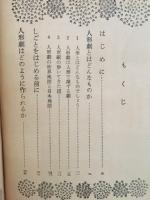 もくじ
はじめに
人形劇とはどんなものか
1 人形とはどんなものでしょう
2 人形劇は人形で演ずる劇
3 人形劇の歩いてきた道
4 人形劇の世界地図と日本地図
しごとをはじめる前に
人形劇はどのように作られるか